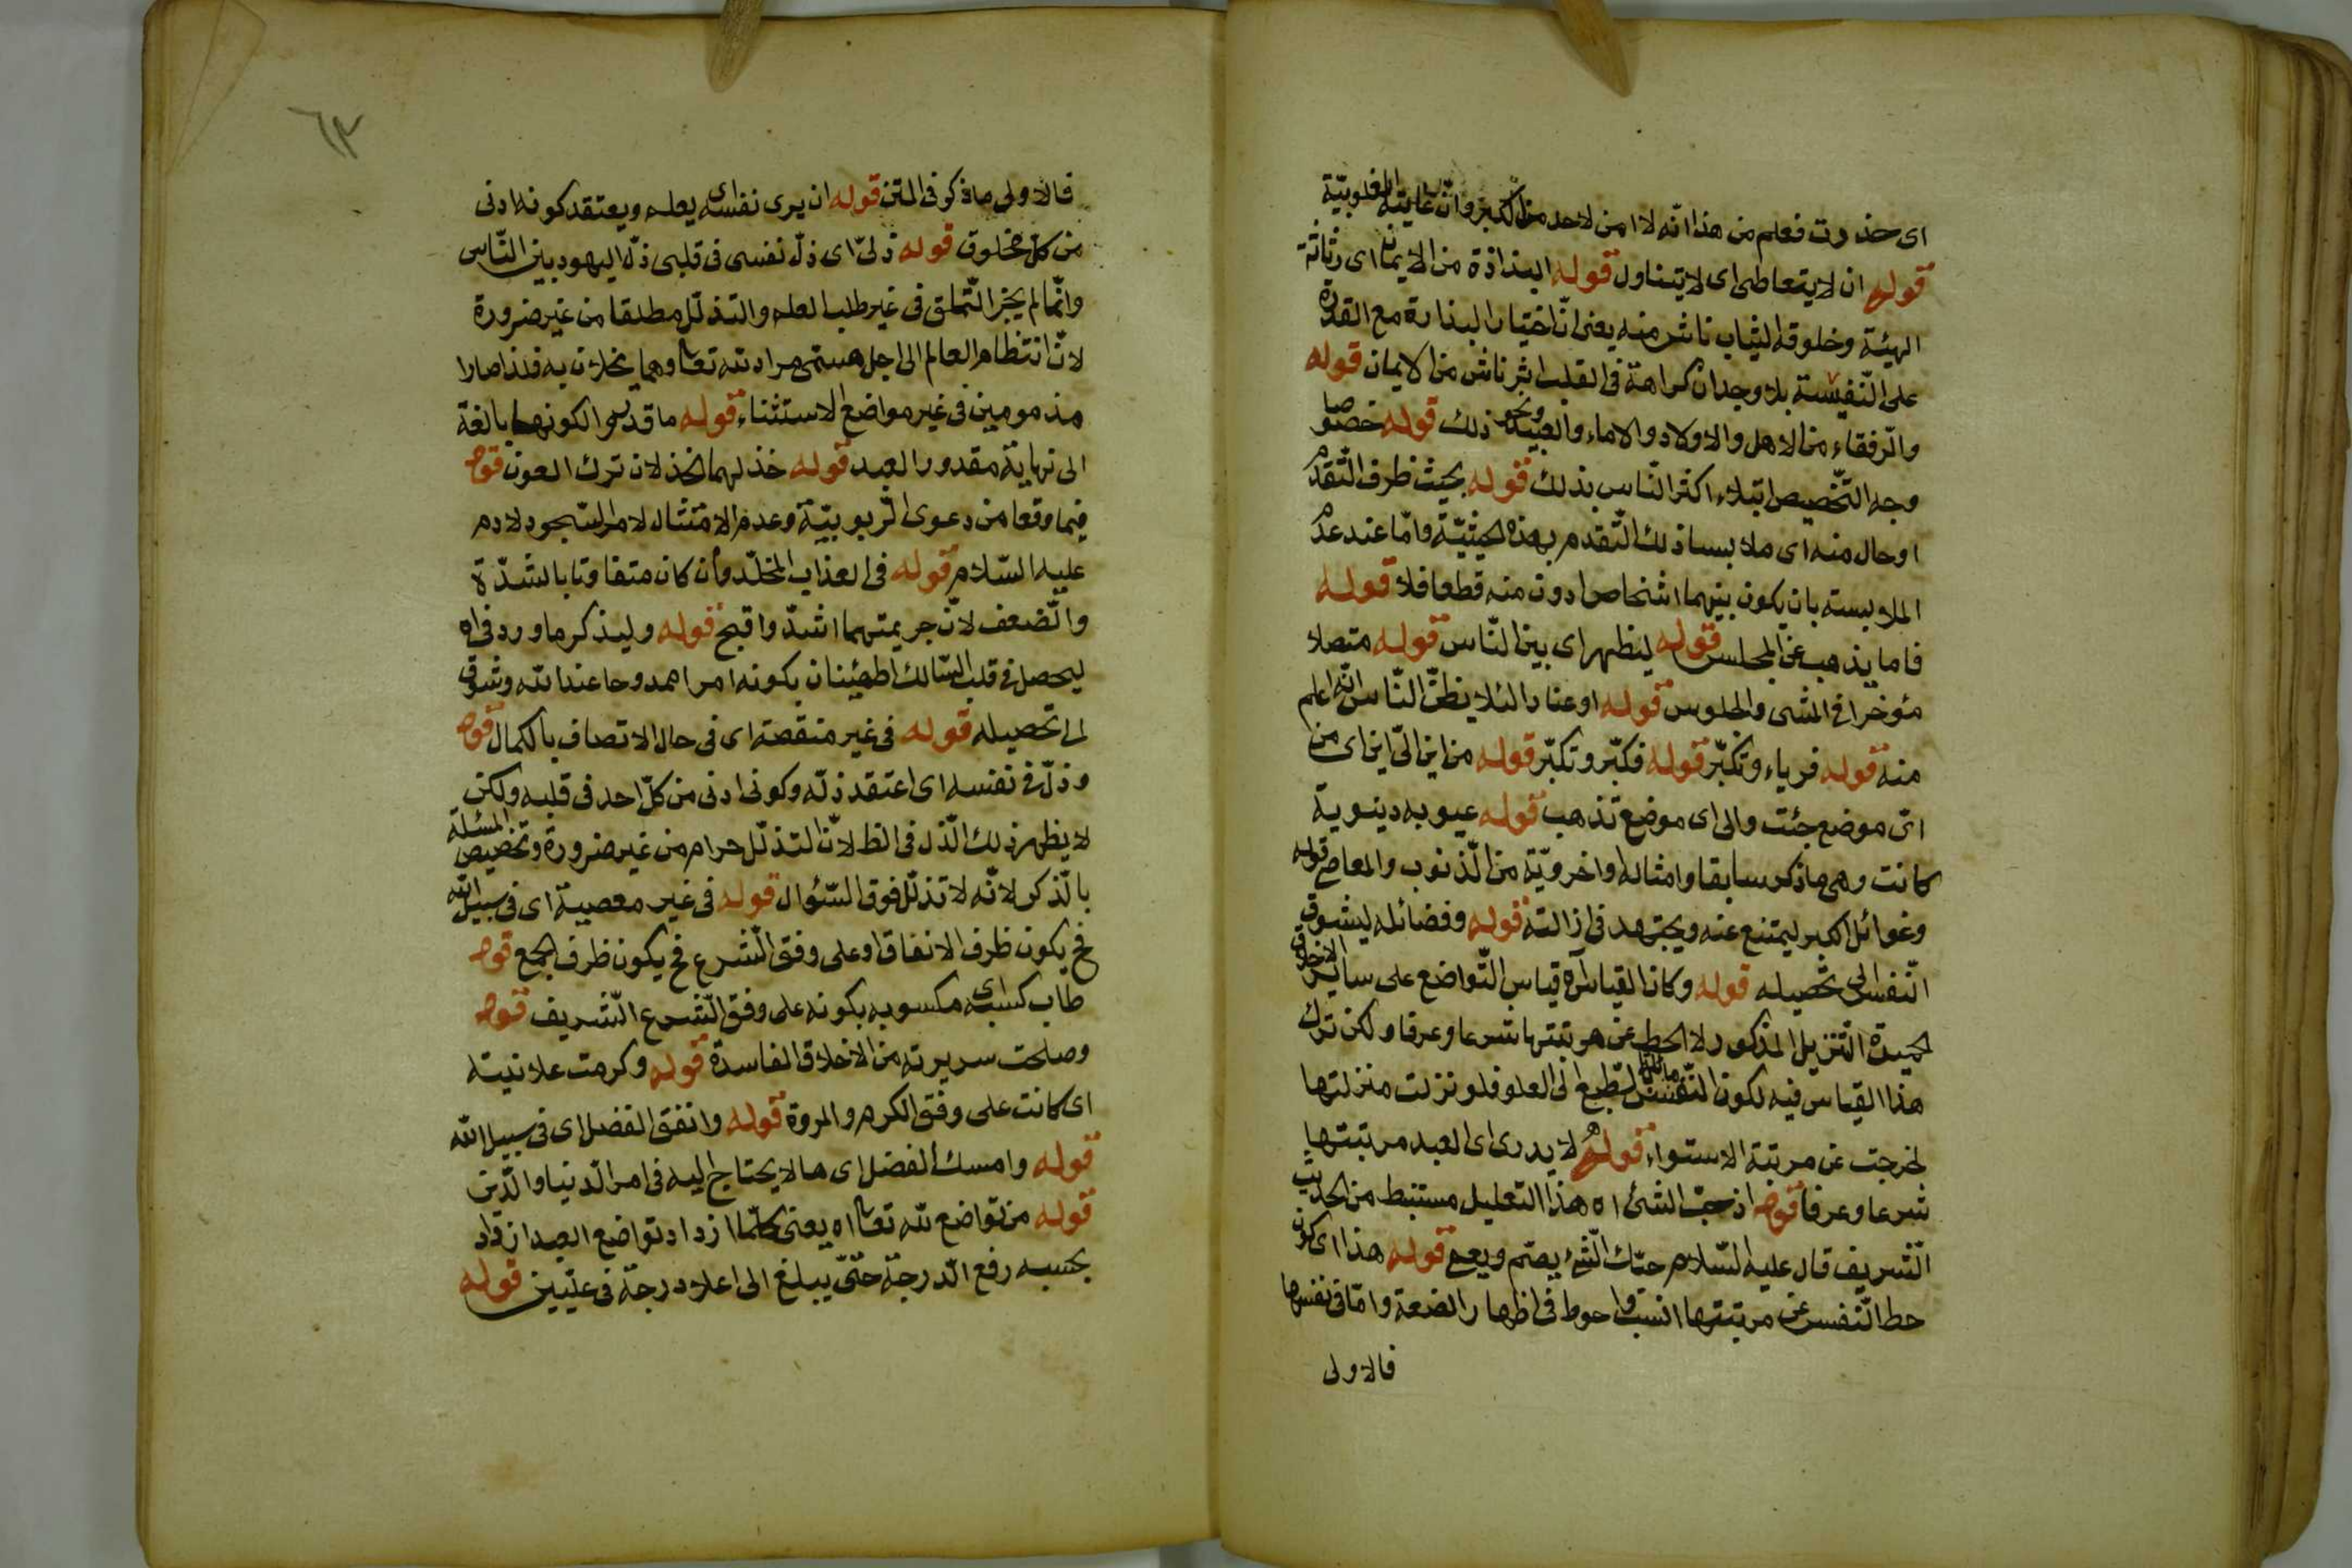 اى خذرت فعلم من هذا انّه لا امن لاحد من الكبر وانّ غايته المغلوبيّة
قوله ان لا يتعاطى اى لا يتناول قوله البذاذة من الايمان اى رثاثة
الهيئة وخلوقة الثياب ناش منه يعنى انّ اختيار البذاذة مع القدرة
على النّفيسة بلا وجدان كراهة فى القلب اثر ناش من الايمان قوله
والرّفقاء من الاهل والاولاد والاماء والعبيد ونحو ذلك قوله خصوصا
وجه التّخصيص ابتلاء اكثر النّاس بذلك قوله بحيث ظرف التّقدم
او حال منه اى ملابسا ذلك التّقدم بهذه الحيثيّة وامّا عند عدم
الملابسته بان يكون بينهما اشخاص ادون منه قطعا فلا قوله
فاما يذهب عن المجلس قوله ليظهر اى بين النّاس قوله متصلا
مؤخرا فى المشى والجلوس قوله او عنادا لئلا يظنّ النّاس انّه اعلم
منه قوله فرياء وتكبّر قوله فكبّر وتكبّر قوله من اين الىّ اين اى من
اىّ موضع جئت والى اى موضع تذهب قوله عيوبه دينوية
كانت وهى ما ذكر سابقا وامثاله واخرويّة من الذّنوب والمعاصى قوله
وغوائل الكبر ليمتنع عنه ويجتهد فى ازالته قوله وفضائله ليشوق
النّفس الى تحصيله قوله وكان القياس آه قياس التّواضع على ساير الاخلاق
الحميدة التّنزيل المذكور لا الحط عن مرتبتها شرعا وعرفا ولكن ترك
هذا القياس فيه لكون النّفس مائلة بالطّبع الى العلو فلو نزلت منزلتها
لخرجت عن مرتبة الاستواء قوله لا يدرى اى العبد مرتبتها
شرعا وعرفا قوله اذ حبّ الشئ اه هذا التعليل مستنبط من الحديث
الشّريف قال عليه السّلام حبّك الشّئ يصمّ ويعمى قوله هذا اى كون
حط النّفس عن مرتبتها انسب واحوط فى اظهار الضعة وامّا فى نفسها
فالاولى
٦٣
فالاولى ما ذكر فى المتن قوله ان يرى نفسه اى يعلم ويعتقد كونه ادنى
من كلّ مخلوق قوله ذلىّ اى ذلّ نفسى فى قلبى ذلّ اليهود بين النّاس
وانّما لم يجز التّملق فى غير طلب العلم والتذلّل مطلقا من غير ضرورة
لانّ انتظام العالم الى اجل مسمى مراد لله تعا وهما يخلان به فلذا صارا
مذمومين فى غير مواضع الاستثناء قوله ما قدروا لكونها بالغة
الى نهاية مقدور العبد قوله خذلهما الخذلان ترك العون قوله
فيما وقعا من دعوى الرّبوبيّة وعدم الامتثال لامر السّجود لادم
عليه السّلام قوله فى العذاب المخلّد وان كان متفاوتا بالشدّة
والضّعف لانّ جريمتهما اشدّ واقبح قوله وليذكر ما ورد فى اه
ليحصل فى قلب السّالك اطمئنان بكونه امرا ممدوحا عند الله وشوق
الى تحصيله قوله فى غير منقصة اى فى حال الاتصاف بالكمال قوله
وذلّ فى نفسه اى اعتقد ذلّه وكونى ادنى من كلّ احد فى قلبه ولكن
لا يظهر ذلك الذّل فى الظ لانّ التذلّل حرام من غير ضرورة وتخصيص المسئلة
بالذّكر لانّه لا تذلّل فوق السّئوال قوله فى غير معصية اى فى سبيل الله
فح يكون ظرف الانفاق او على وفق الشّرع فح يكون ظرف الجمع قوله
طاب كسبه اى مكسوبه بكونه على وفق الشّرع الشّريف قوله
وصلحت سريرته من الاخلاق الفاسدة قوله وكرمت علانيته
اى كانت على وفق الكرم والمروة قوله وانفق الفضل اى فى سبيل الله
قوله وامسك الفضل اى ما لا يحتاج اليه فى امر الدّنيا والدّين
قوله من تواضع لله تعا اه يعنى كلّما ازداد تواضع العبد ازداد
بحسبه رفع الدّرجة حتّى يبلغ الى اعلا درجة فى عليّين قوله